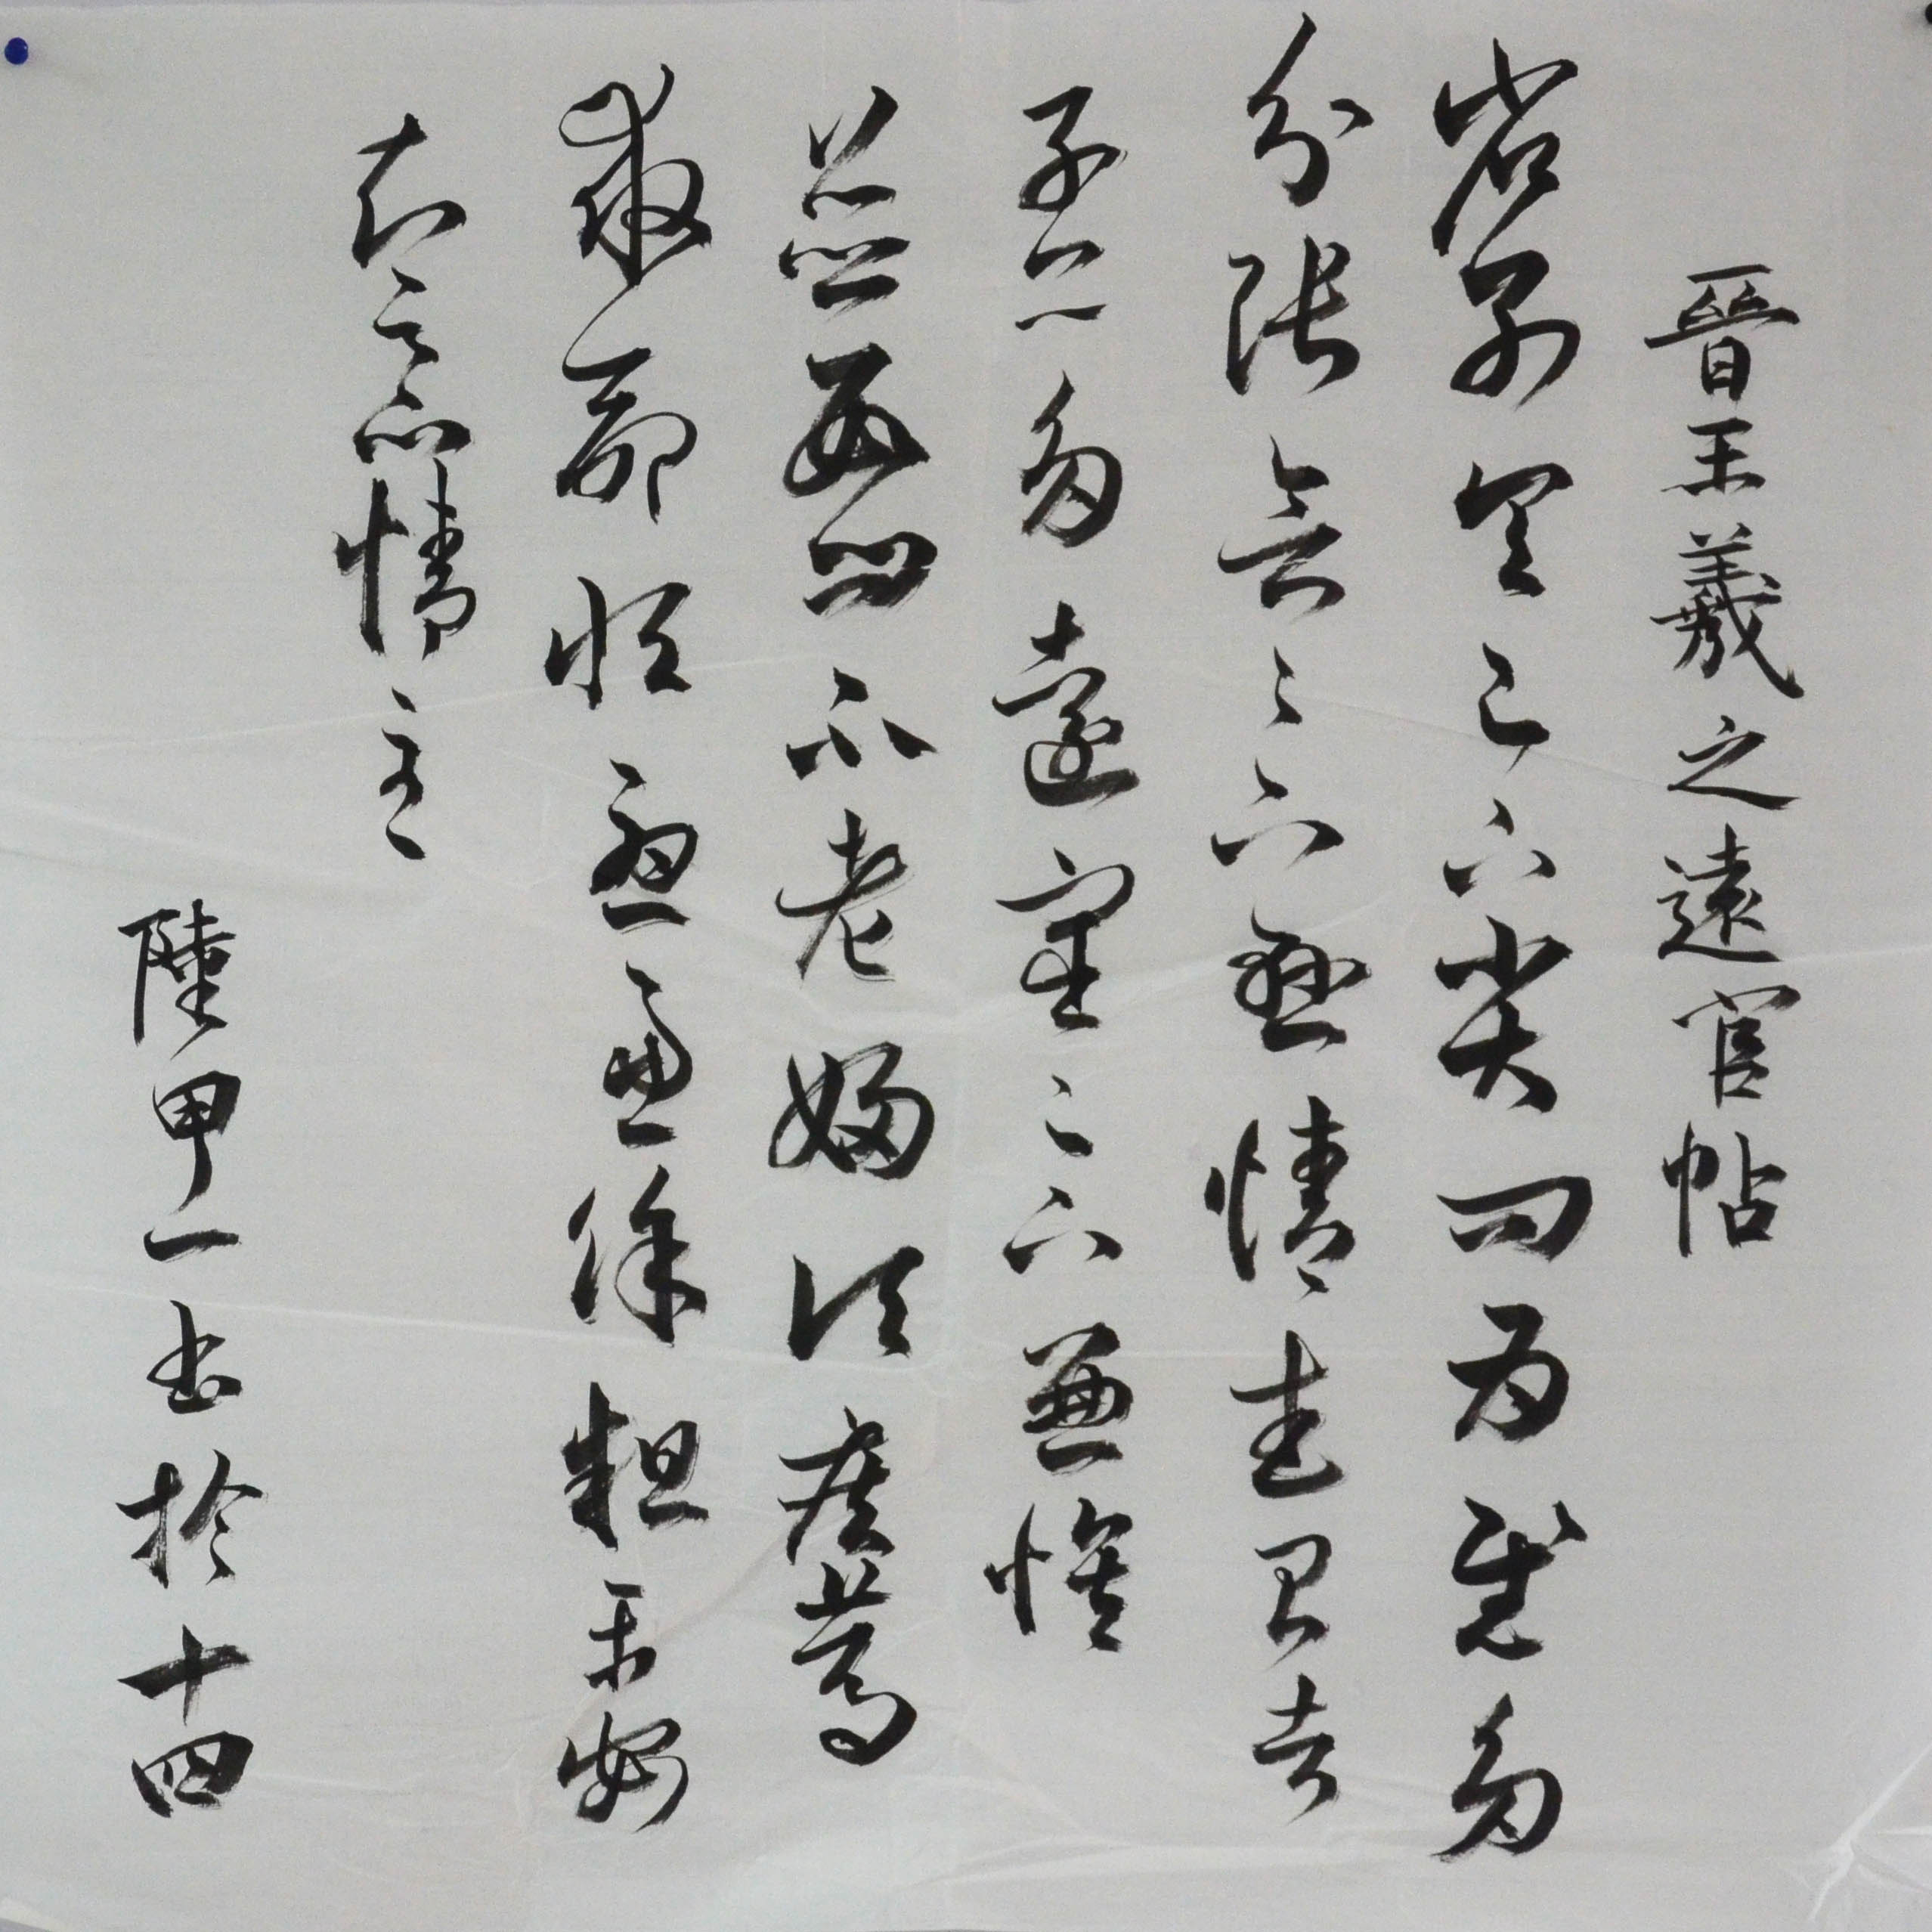 晉王羲之遠官帖
省別具足下小大問為慰多
分張念足下懸情武昌諸
子亦多遠宦足下兼懷
並數問不老婦頃疾篤
救命恒憂慮餘粗平安
知足下情至
陸甲一书於十四